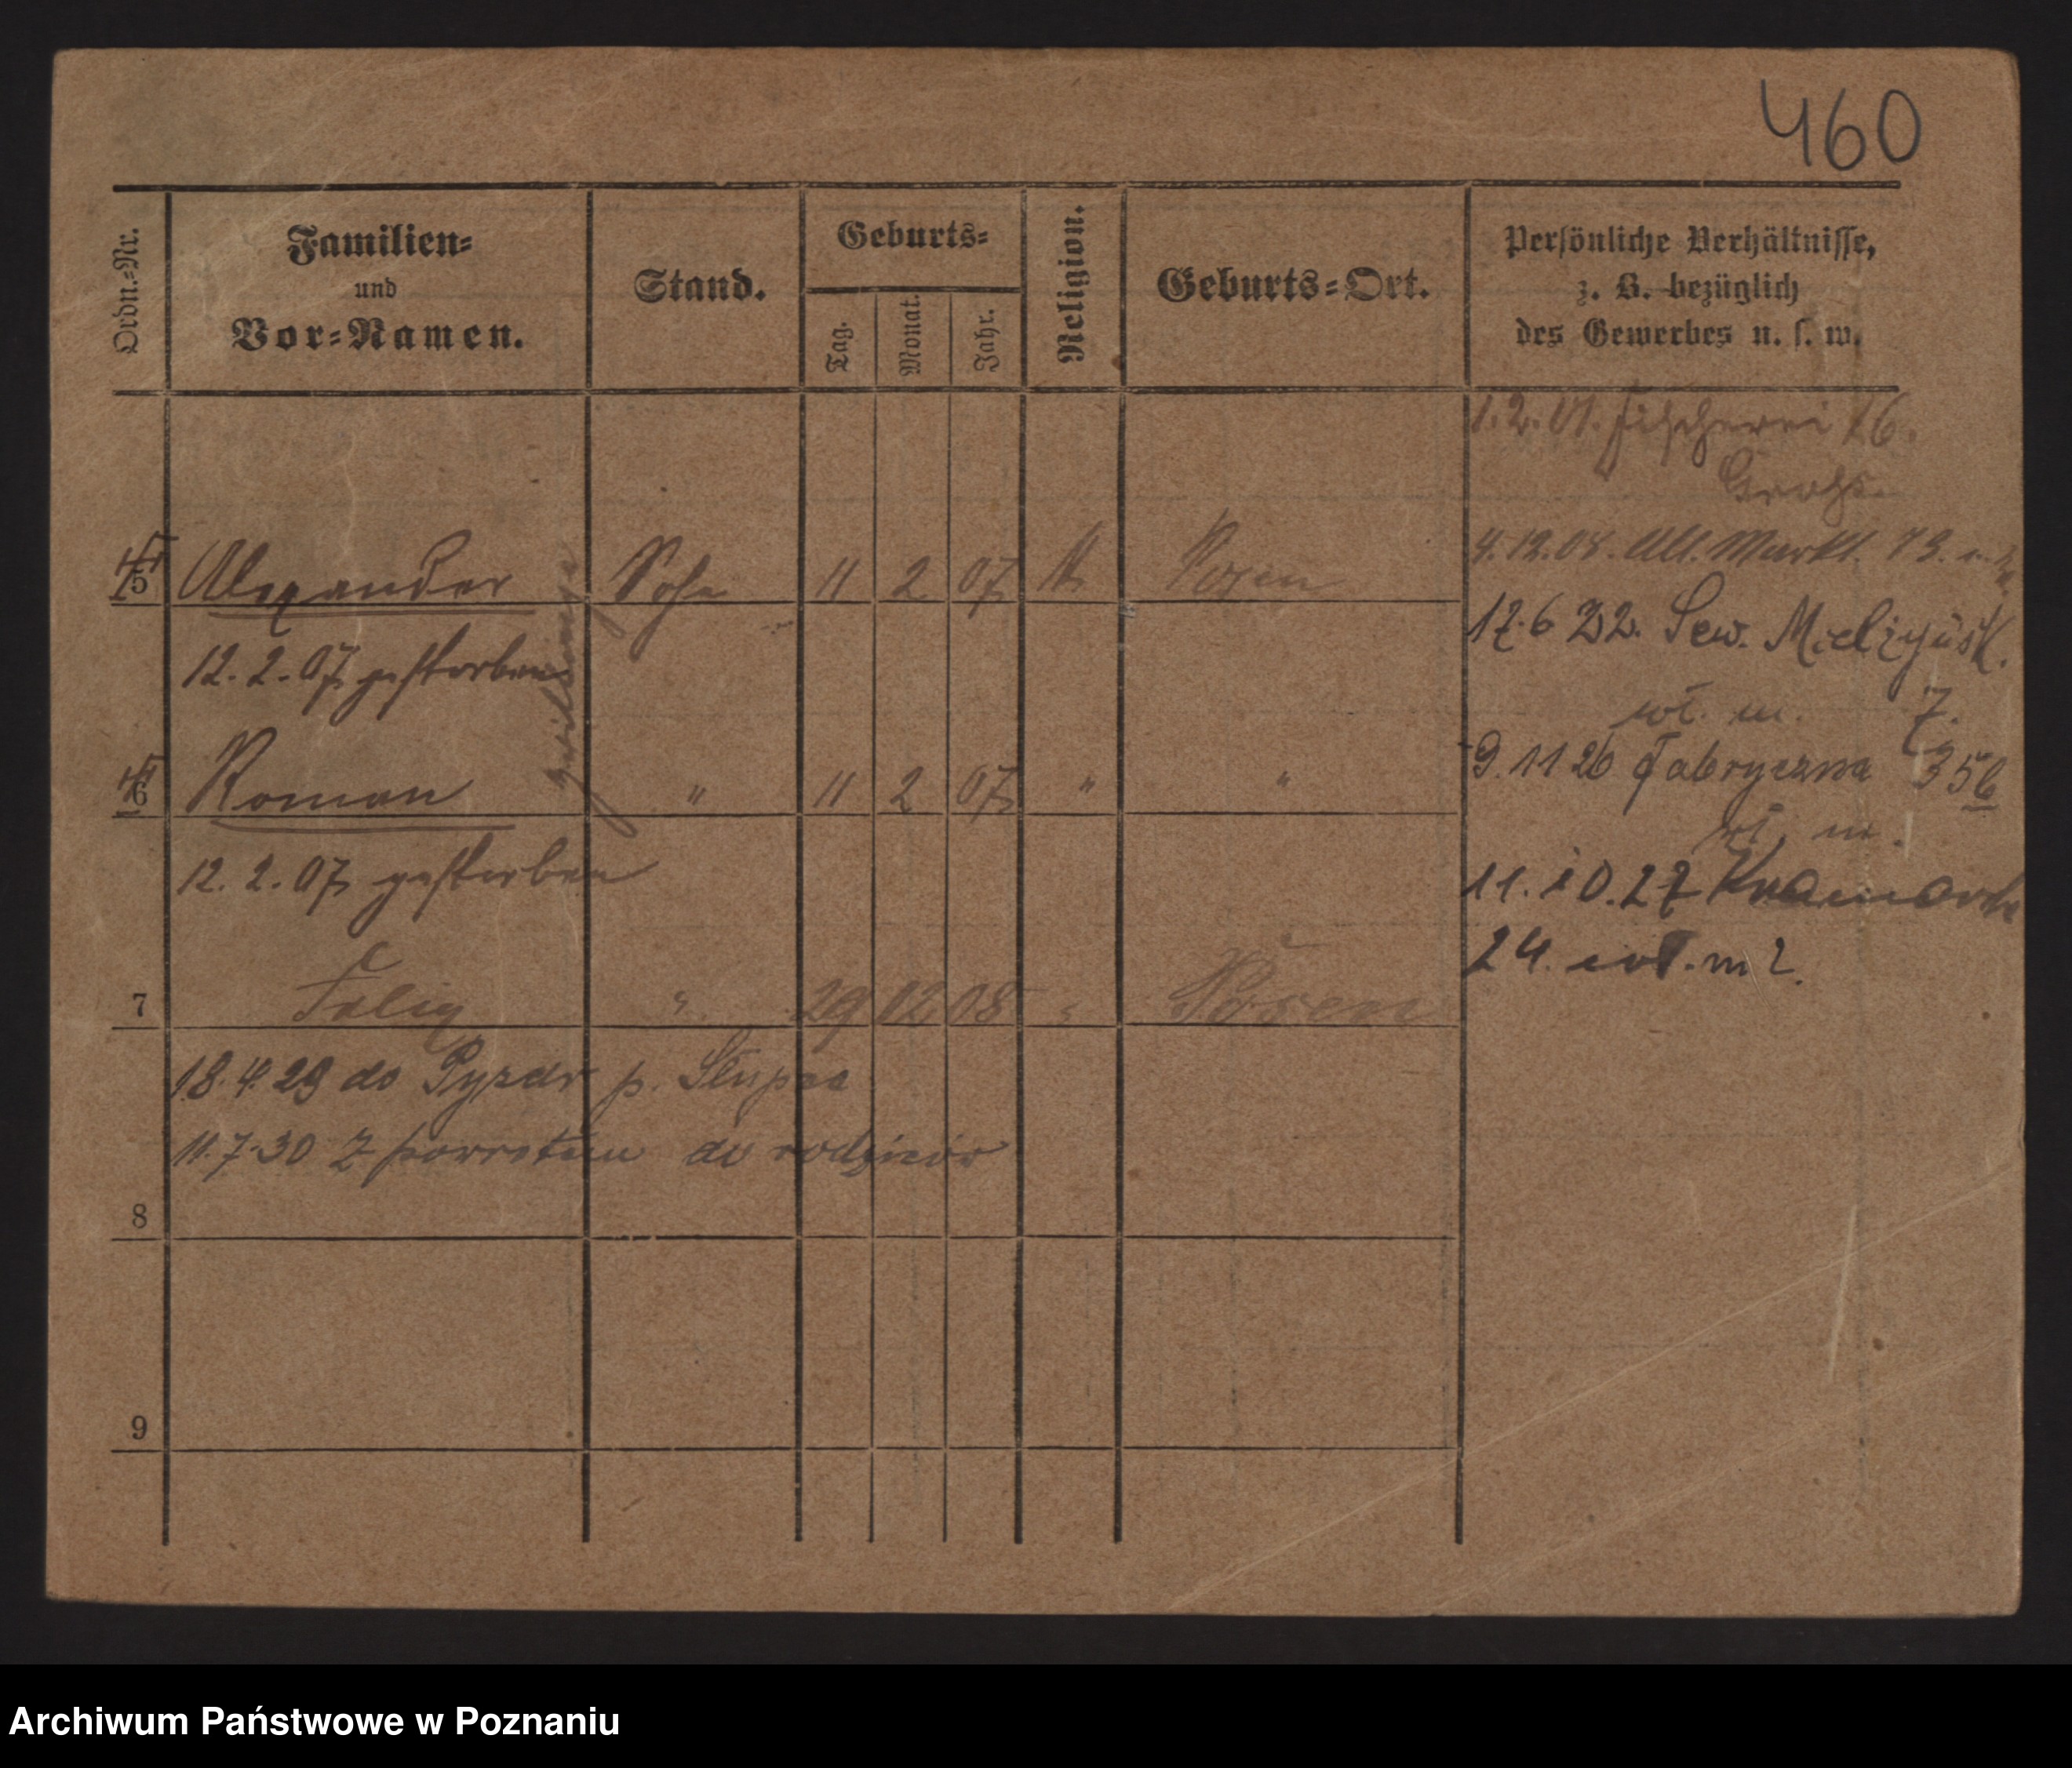 460
Ordn.-Nr.
Familien-
und
Vor-Namen.
Stand.
Geburts-
Tag.
Monat.
Jahr.
Religion.
Geburts-Ort.
Persönliche Verhältnisse,
z. B. bezüglich
des Gewerbes u. s. w.
1.2.01. Fischerei 16.
4.12.08. Alt. Markt. 73.
5 Alexander Sohn 11 2 07 Posen
12.2.07 gestorben
17.6 22. Sew. Mielżyńsk.
wł. m. 7.
6 Roman " 11 2 07 " "
9.11 26 Fabryczna 35b
m.
12.2.07 gestorben
Zwillinge
11.10.27 Kramarska
24. wł. m.
7 Felix " 29 12 08 " Posen
18.4.29 do Pyzdr p. Słupca
11.7.30 z powrotem do rodziców
8
9
Archiwum Państwowe w Poznaniu